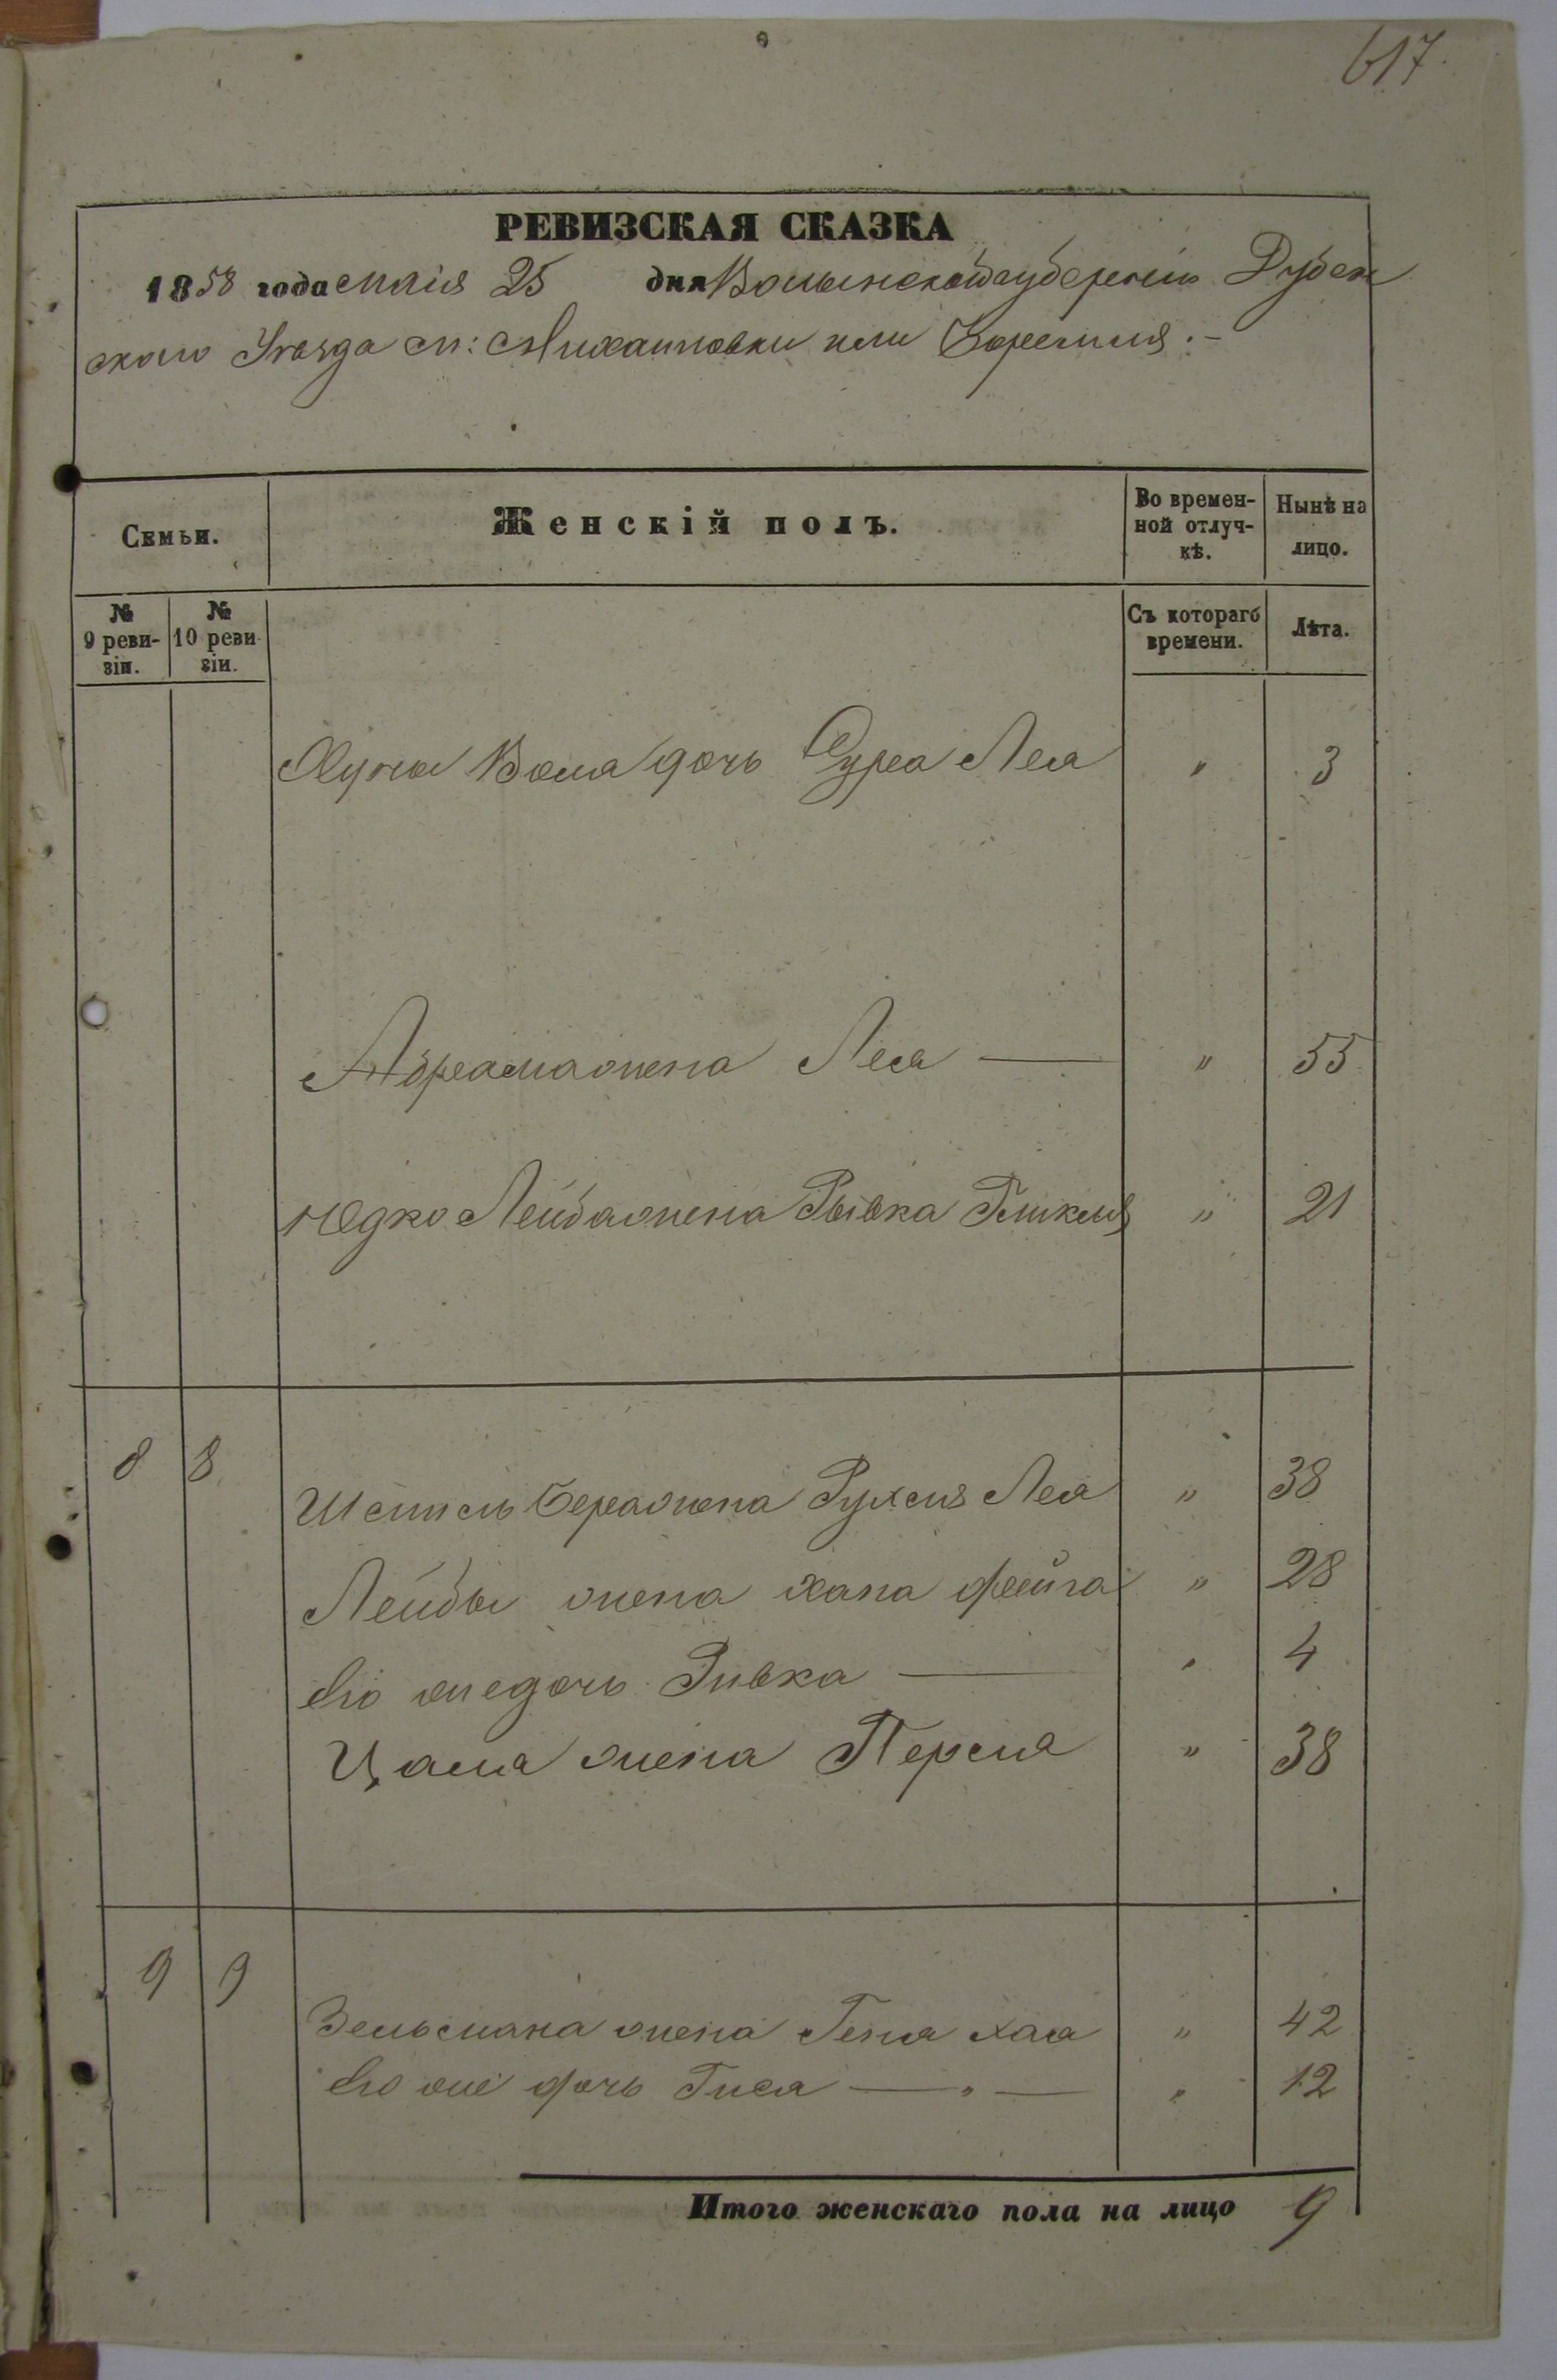 617.
РЕВИЗСКАЯ СКАЗКА
1858 года маія 25 дня Волынской губерніи Дубен
скаго Уезда м: Михаиловки или Боремля .-
Семьи.
Женскій полъ.
Во времен-
ной отлуч-
кѣ.
Нынѣ на
лицо.
№
9 реви-
зіи.
№
10 реви
зіи.
Съ котораго
времени.
Лѣта.
Вола дочь Сура Лея " 3
Абрама жена Лея — " 55
Юдко Лейба жена Рывка Гликля " 21
8 8
Шмиль Бера жена Рухля Лея " 38
Лейбы жена Хана Фейга " 28
Его же дочь Ривка — " 4
жена Перля " 38
9 9
Зельмана жена Геня Хая " 42
Его же дочь Гися — " — " 12
Итого женскаго пола на лицо 9